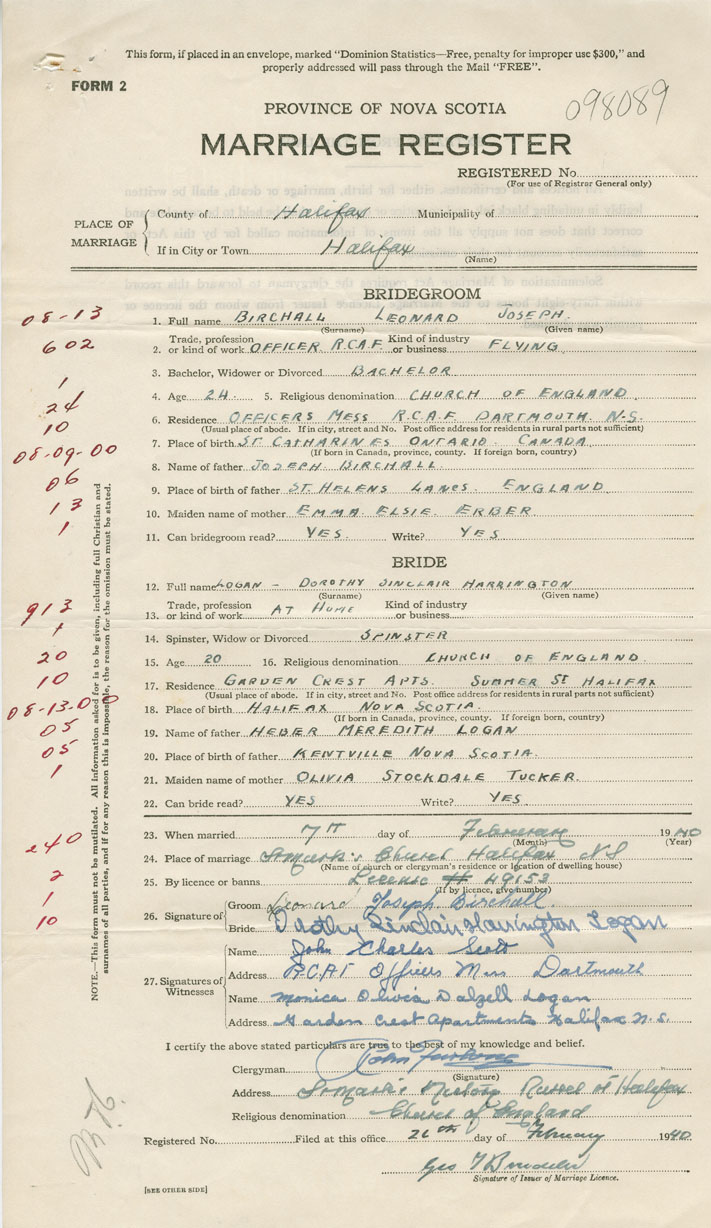 This form, if placed in an envelope, marked "Dominion Statistics—Free, penalty for improper use $300," and
properly addressed will pass through the Mail "FREE".
FORM 2
098089
PROVINCE OF NOVA SCOTIA
MARRIAGE REGISTER
REGISTERED No.
(For use of Registrar General only)
PLACE OF MARRIAGE
County of Halifax Municipality of
If in City or Town Halifax
(Name)
BRIDEGROOM
08-13 1. Full name BIRCHALL LEONARD JOSEPH.
(Surname) (Given name)
602 2. Trade, profession or kind of work OFFICER R.C.A.F. Kind of industry or business FLYING
1 3. Bachelor, Widower or Divorced BACHELOR
24 4. Age 24. 5. Religious denomination CHURCH OF ENGLAND
10 6. Residence OFFICERS MESS R.C.A.F. DARTMOUTH. N.S.
(Usual place of abode. If in city, street and No. Post office address for residents in rural parts not sufficient)
08-09-00 7. Place of birth ST. CATHARINES ONTARIO. CANADA
(If born in Canada, province, county. If foreign born, country)
06 8. Name of father JOSEPH BIRCHALL.
9. Place of birth of father ST. HELENS LANCS. ENGLAND
13 10. Maiden name of mother EMMA ELSIE ERBER
1 11. Can bridegroom read? YES. Write? YES
BRIDE
12. Full name LOGAN - DOROTHY SINCLAIR HARRINGTON
(Surname) (Given name)
913 13. Trade, profession or kind of work AT HOME Kind of industry or business
1 14. Spinster, Widow or Divorced SPINSTER
20 15. Age 20 16. Religious denomination CHURCH OF ENGLAND.
10 17. Residence GARDEN CREST APTS. SUMMER ST HALIFAX
(Usual place of abode. If in city, street and No. Post office address for residents in rural parts not sufficient)
08-13-00 18. Place of birth HALIFAX NOVA SCOTIA.
(If born in Canada, province, county. If foreign born, country)
05 19. Name of father HEBER MEREDITH LOGAN
05 20. Place of birth of father KENTVILLE NOVA SCOTIA.
1 21. Maiden name of mother OLIVIA STOCKDALE TUCKER.
22. Can bride read? YES Write? YES
23. When married 7th day of February 1940
(Month) (Year)
240 24. Place of marriage St Mark's Church Halifax NS
(Name of church or clergyman's residence or location of dwelling house)
2 25. By licence or banns License # 49153
(If by licence, give number)
1 26. Signature of Groom Leonard Joseph Birchall.
10 Bride Dorothy Sinclair Harrington Logan
27. Signatures of Witnesses
Name John Charles Scott
Address R.C.A.F Officers Mess Dartmouth
Name Monica Olivia Dalzell Logan
Address Garden Crest Apartments Halifax N.S.
I certify the above stated particulars are true to the best of my knowledge and belief.
Clergyman John
(Signature)
Address St Mark's Rectory Russel St Halifax
Religious denomination Church of England
Registered No. Filed at this office 26th day of February 1940
Geo
Signature of Issuer of Marriage Licence.
[SEE OTHER SIDE]
NOTE.—This form must not be mutilated. All information asked for is to be given, including full Christian and
surnames of all parties, and if for any reason this is impossible, the reason for the omission must be stated.